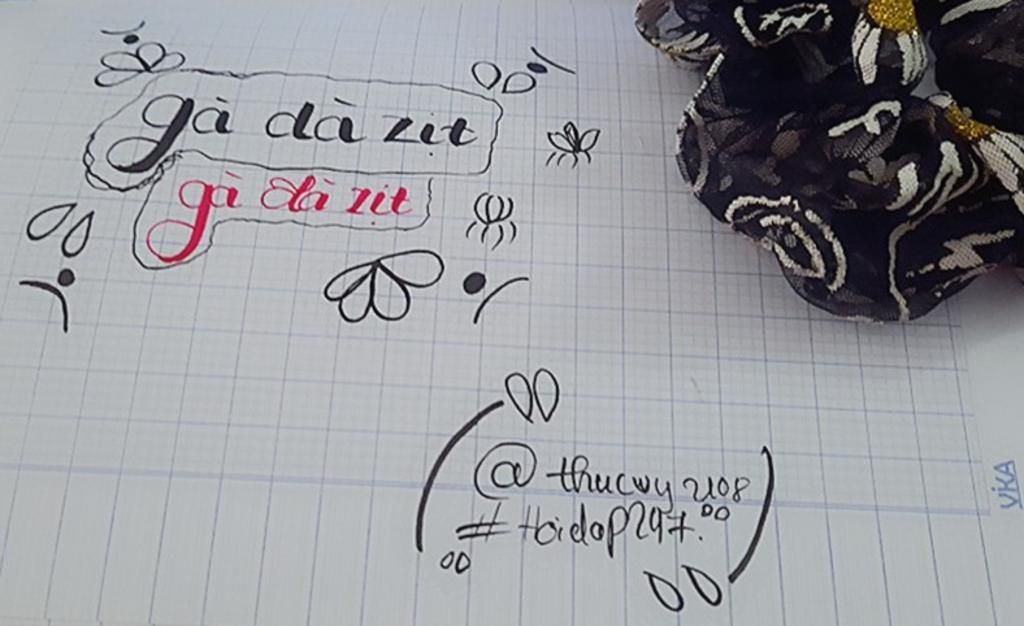 gà dà zịt
gà dà zịt
@thucwy2108
#hoidap247.
VIKA